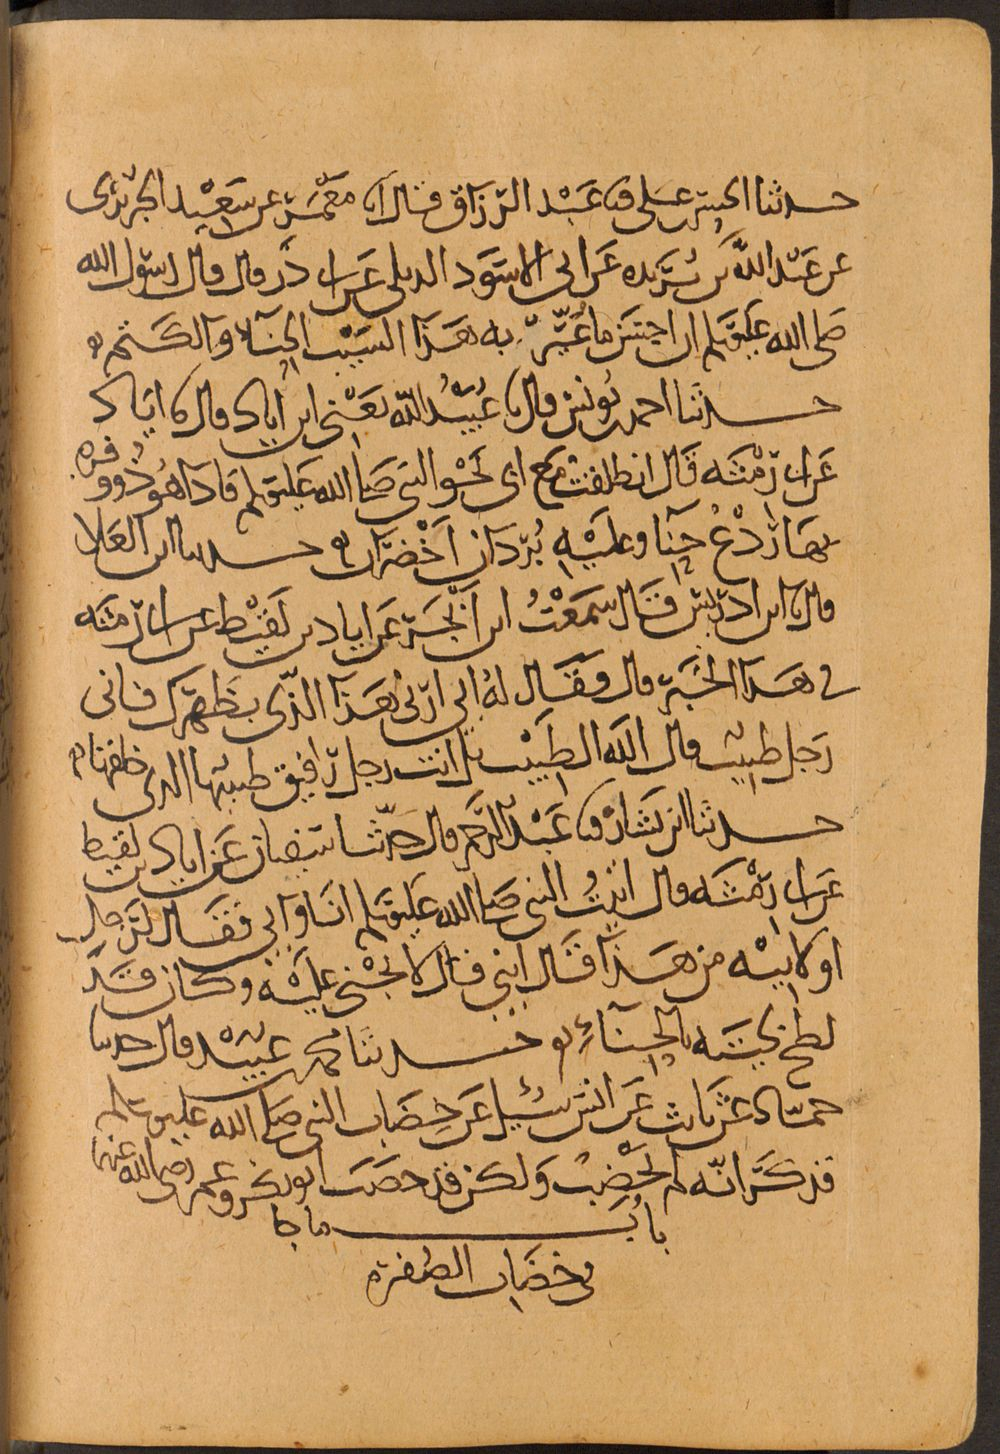 حدثنا الحسن بن علي نا عبد الرزاق قال انا معمر عن سعيد الجريري
عن عبد الله بن بريده عن ابي الاسود الديلي عن ابي ذر قال قال رسول الله
صلى الله عليه وسلم ان احسن ما غير به هذا الشيب الحناء والكتم ه
حدثنا احمد بن يونس قال نا عبيد الله يعني ابن اياد قال نا اياد
عن ابي رمثه قال انطلقت مع ابي نحو النبي صلى الله عليه وسلم فاذا هو ذو وفره
بها ردع حنا وعليه بردان اخضران ه حدثنا ابن العلا
قال نا ابن ادريس قال سمعت ابن ابجر عن اياد بن لقيط عن ابي رمثه
في هذا الخبر قال فقال له ابي ارني هذا الذي بظهرك فاني
رجل طبيب قال الله الطبيب بل انت رجل رفيق طبيبها الذي خلقها ه
حدثنا ابن بشار نا عبد الرحمن قال حدثنا سفيان عن اياد بن لقيط
عن ابي رمثه قال اتيت النبي صلى الله عليه وسلم انا وابي فقال لرجل
او لابيه من هذا قال ابني قال لا تجني عليه وكان قد
لطخ لحيته بالحناء ه حدثنا محمد بن عبيد قال حدثنا
حماد عن ثابت عن انس سئل عن خضاب النبي صلى الله عليه وسلم
فذكر انه لم يخضب ولكن قد خضب ابو بكر وعمر رضي الله عنهما
باب ما جا
في خضاب الصفرة